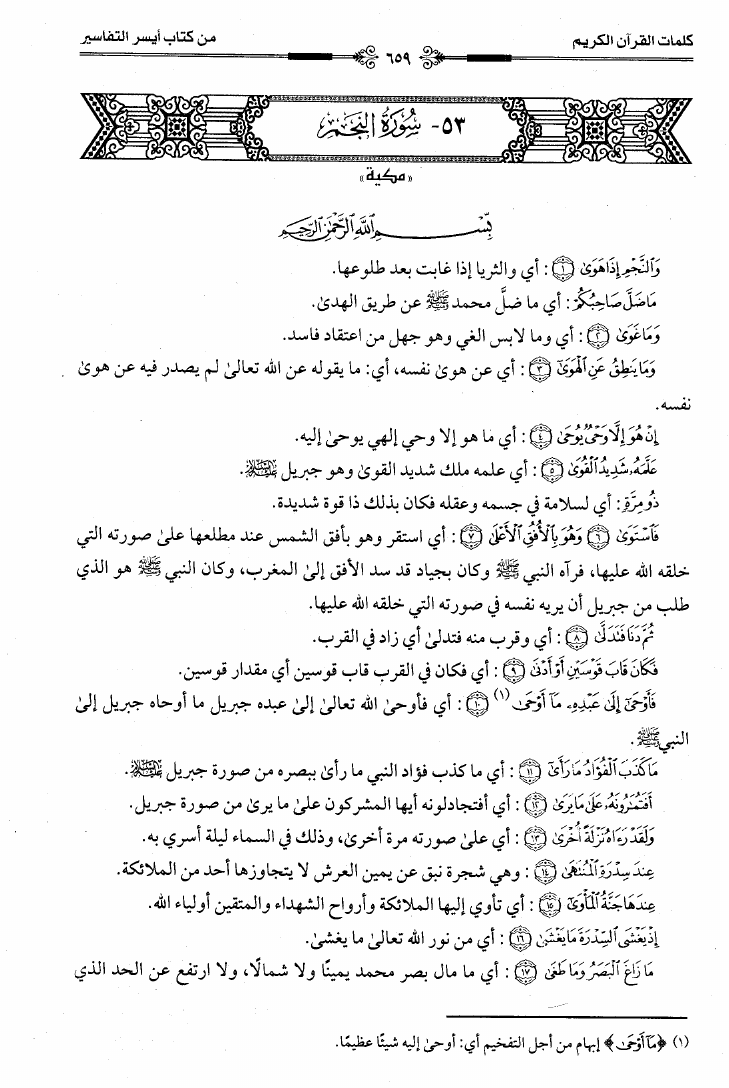 كلمات القرآن الكريم
٦٥٩
من كتاب أيسر التفاسير
٥٣- سُورَةُ النَّجْمِ
«مكية»
بِسْمِ ٱللَّهِ ٱلرَّحْمَٰنِ ٱلرَّحِيمِ
وَٱلنَّجْمِ إِذَا هَوَىٰ ١ : أي والثريا إذا غابت بعد طلوعها.
مَا ضَلَّ صَاحِبُكُمْ: أي ما ضلَّ محمد ﷺ عن طريق الهدىٰ.
وَمَا غَوَىٰ ٢ : أي وما لابس الغي وهو جهل من اعتقاد فاسد.
وَمَا يَنطِقُ عَنِ ٱلْهَوَىٰٓ ٣ : أي عن هوىٰ نفسه، أي: ما يقوله عن الله تعالىٰ لم يصدر فيه عن هوىٰ
نفسه.
إِنْ هُوَ إِلَّا وَحْىٌ يُوحَىٰ ٤ : أي ما هو إلا وحي إلهي يوحىٰ إليه.
عَلَّمَهُۥ شَدِيدُ ٱلْقُوَىٰ ٥ : أي علمه ملك شديد القوىٰ وهو جبريل عليه السلام.
ذُو مِرَّةٍ: أي لسلامة في جسمه وعقله فكان بذلك ذا قوة شديدة.
فَٱسْتَوَىٰ ٦ وَهُوَ بِٱلْأُفُقِ ٱلْأَعْلَىٰ ٧ : أي استقر وهو بأفق الشمس عند مطلعها علىٰ صورته التي
خلقه الله عليها، فرآه النبي ﷺ وكان بجياد قد سد الأفق إلىٰ المغرب، وكان النبي ﷺ هو الذي
طلب من جبريل أن يريه نفسه في صورته التي خلقه الله عليها.
ثُمَّ دَنَا فَتَدَلَّىٰ ٨ : أي وقرب منه فتدلىٰ أي زاد في القرب.
فَكَانَ قَابَ قَوْسَيْنِ أَوْ أَدْنَىٰ ٩ : أي فكان في القرب قاب قوسين أي مقدار قوسين.
فَأَوْحَىٰٓ إِلَىٰ عَبْدِهِۦ مَآ أَوْحَىٰ(١) ١٠ : أي فأوحىٰ الله تعالىٰ إلىٰ عبده جبريل ما أوحاه جبريل إلىٰ
النبي ﷺ.
مَا كَذَبَ ٱلْفُؤَادُ مَا رَأَىٰٓ ١١ : أي ما كذب فؤاد النبي ما رأىٰ ببصره من صورة جبريل عليه السلام.
أَفَتُمَٰرُونَهُۥ عَلَىٰ مَا يَرَىٰ ١٢ : أي أفتجادلونه أيها المشركون علىٰ ما يرىٰ من صورة جبريل.
وَلَقَدْ رَءَاهُ نَزْلَةً أُخْرَىٰ ١٣ : أي علىٰ صورته مرة أخرىٰ، وذلك في السماء ليلة أسري به.
عِندَ سِدْرَةِ ٱلْمُنتَهَىٰ ١٤ : وهي شجرة نبق عن يمين العرش لا يتجاوزها أحد من الملائكة.
عِندَهَا جَنَّةُ ٱلْمَأْوَىٰٓ ١٥ : أي تأوي إليها الملائكة وأرواح الشهداء والمتقين أولياء الله.
إِذْ يَغْشَى ٱلسِّدْرَةَ مَا يَغْشَىٰ ١٦ : أي من نور الله تعالىٰ ما يغشىٰ.
مَا زَاغَ ٱلْبَصَرُ وَمَا طَغَىٰ ١٧ : أي ما مال بصر محمد يمينًا ولا شمالًا، ولا ارتفع عن الحد الذي
(١) ﴿مَآ أَوْحَىٰ﴾ إبهام من أجل التفخيم أي: أوحىٰ إليه شيئًا عظيمًا.